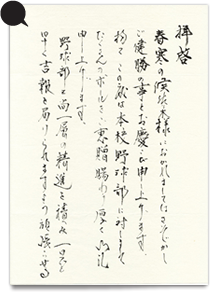 拝啓
春寒の候、皆様におかれましてはますます
ご健勝の事とお慶び申し上げます。
さて、この度は本校野球部に対しまして
たくさんのボールをご恵贈賜わり厚く御礼
申し上げます。
野球部も尚一層の精進を積み、一日も
早く吉報を届けられますよう頑張る